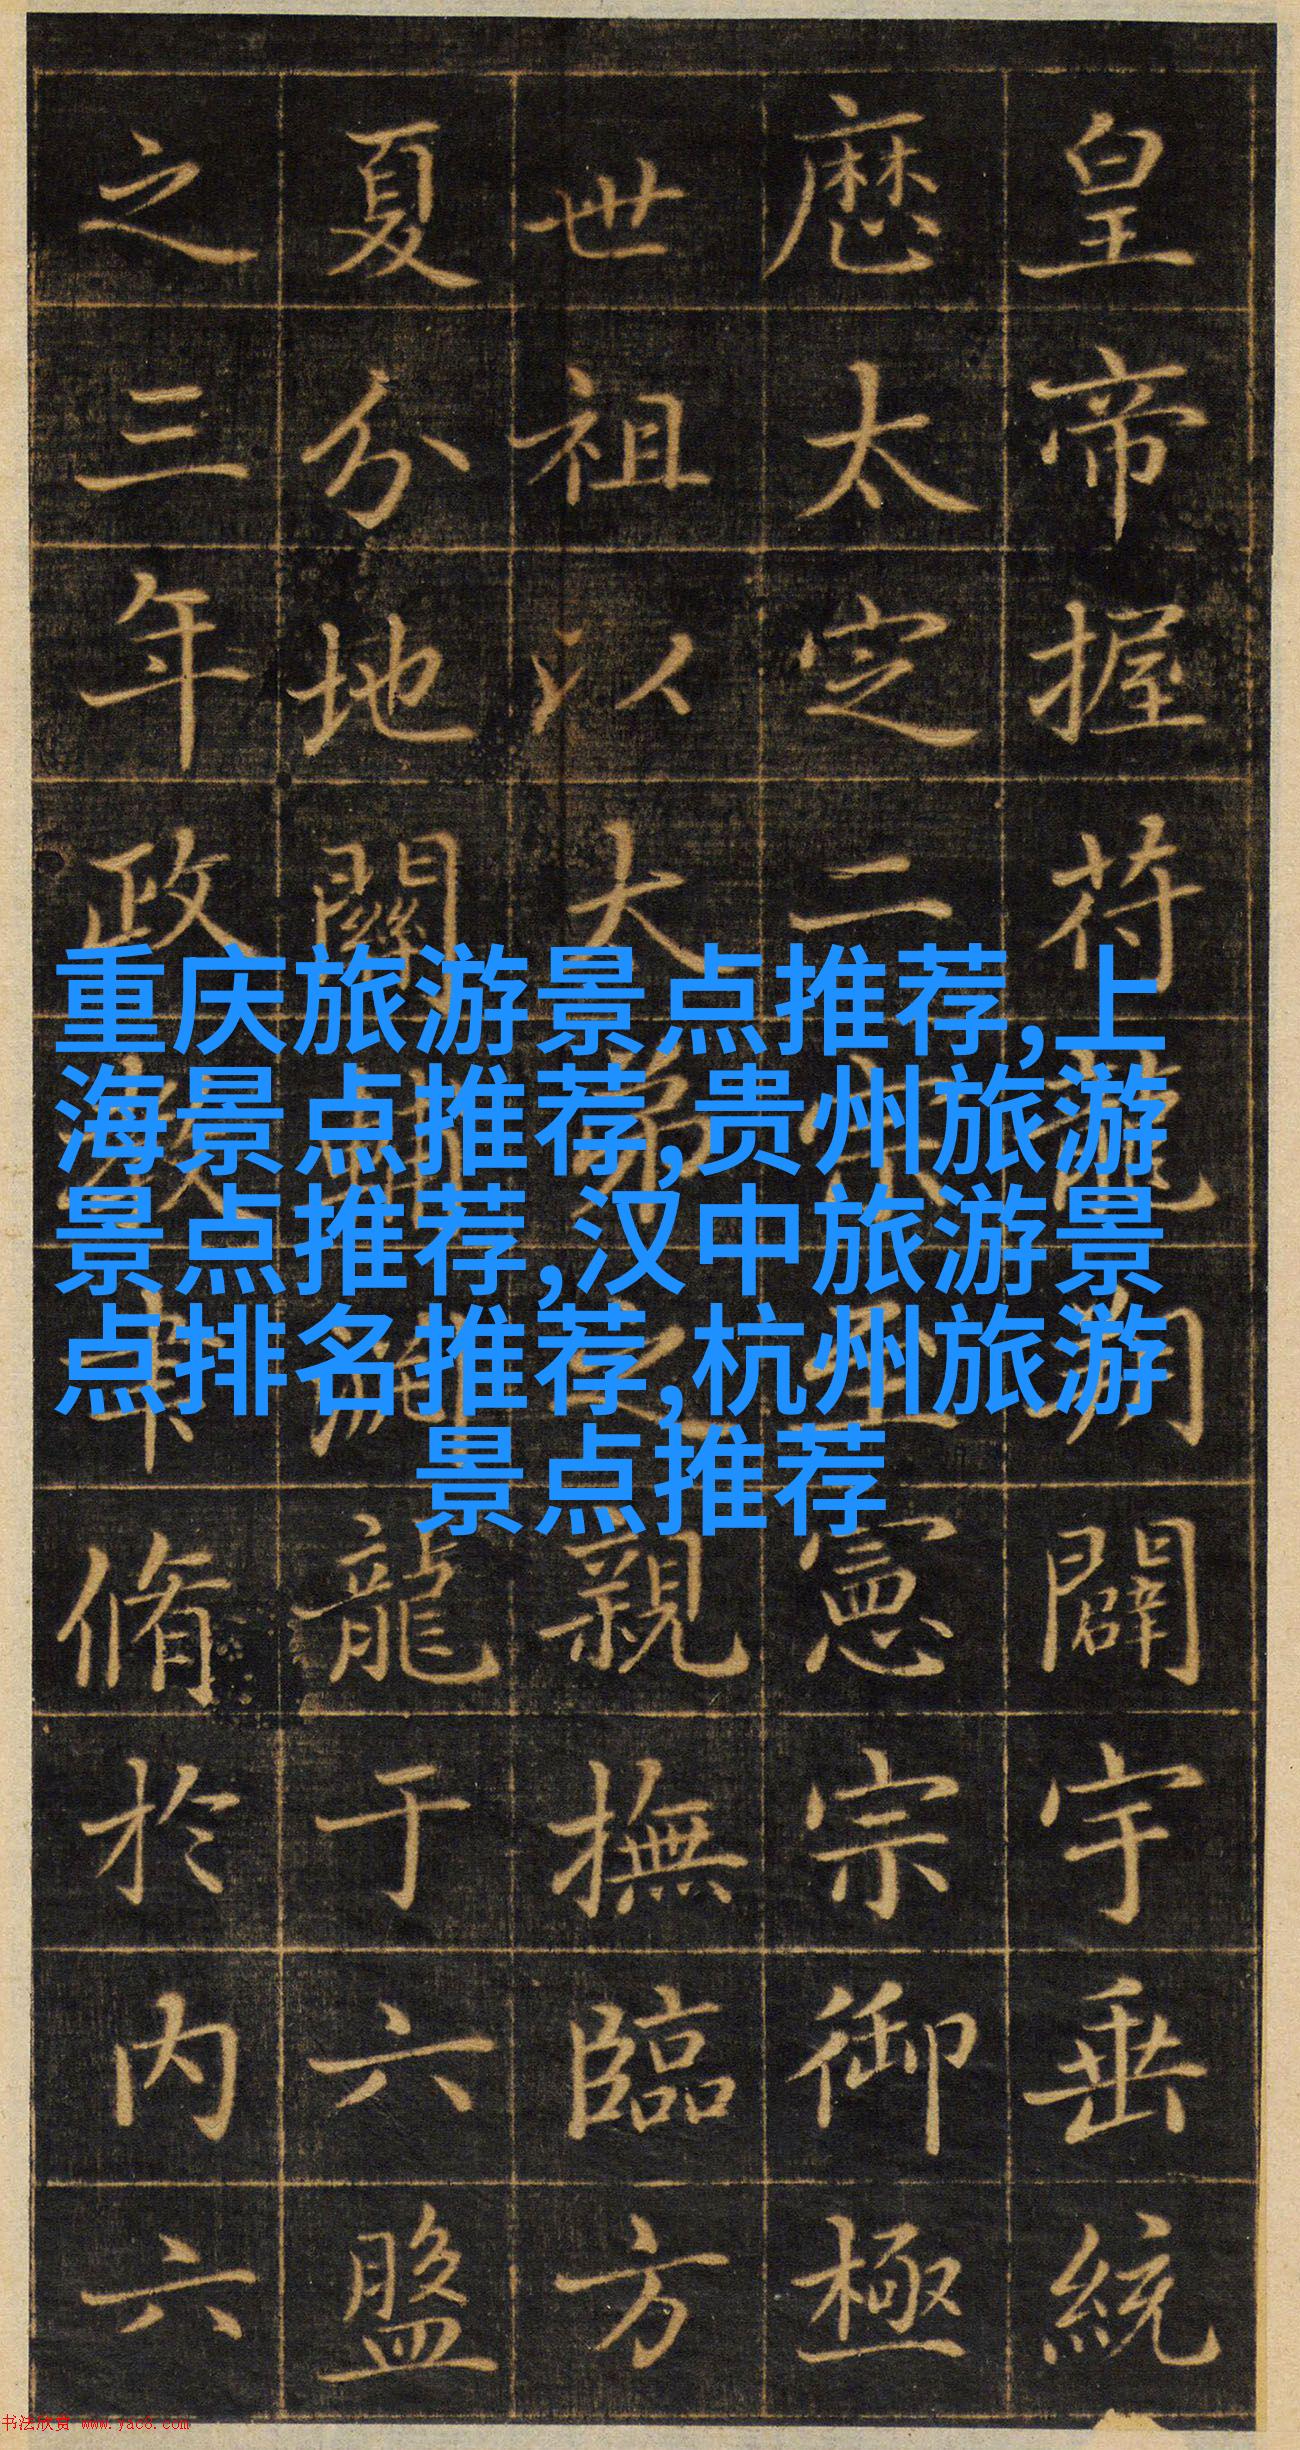 皇帝握苻龍朔闢宇垂統
厯太定二憲宗御極
世祖以大弟之親撫臨方
夏分地關龍于六盤
之三年政脩於內六
重庆旅游景点推荐,上
海景点推荐,贵州旅游
景点推荐,汉中旅游景
点排名推荐,杭州旅游
景点推荐
书法欣赏 www.yac8.com